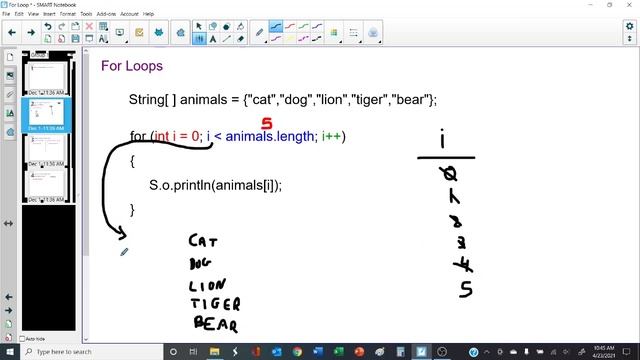 For Loop * - SMART Notebook
File Edit View Insert Format Tools Add-ons Account Help
Group 1
Dec 1-11:36 AM
Dec 1-11:36 AM
Dec 1-11:36 AM
Auto hide
For Loops
String[ ] animals = {"cat","dog","lion","tiger","bear"};
5
for (int i = 0; i < animals.length; i++)
{
S.o.println(animals[i]);
}
CAT
DOG
LION
TIGER
BEAR
i
0
1
2
3
4
5
10:45 AM
4/23/2021